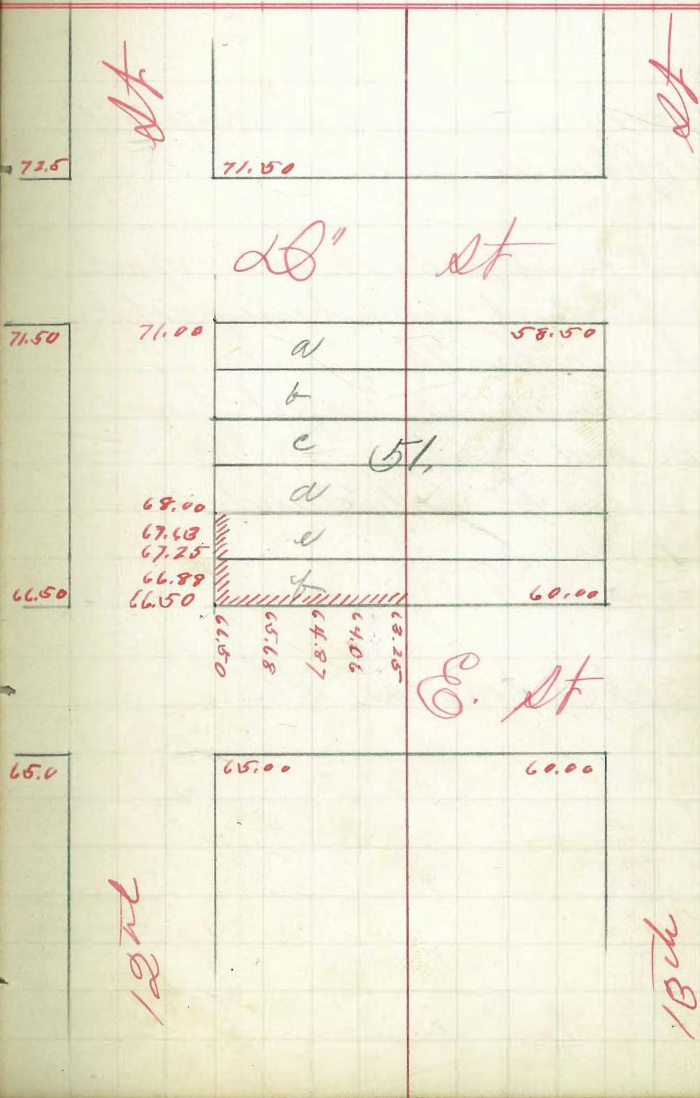 St St
72.5 71.50
St
71.50 71.00 58.50
a
b
c 51.
d
68.00
67.63 e
67.25
66.88 f
66.50 66.50 60.00
66.50 65.68 64.87 64.06 63.25
E. St
65.0 65.00 60.00
12th 13th